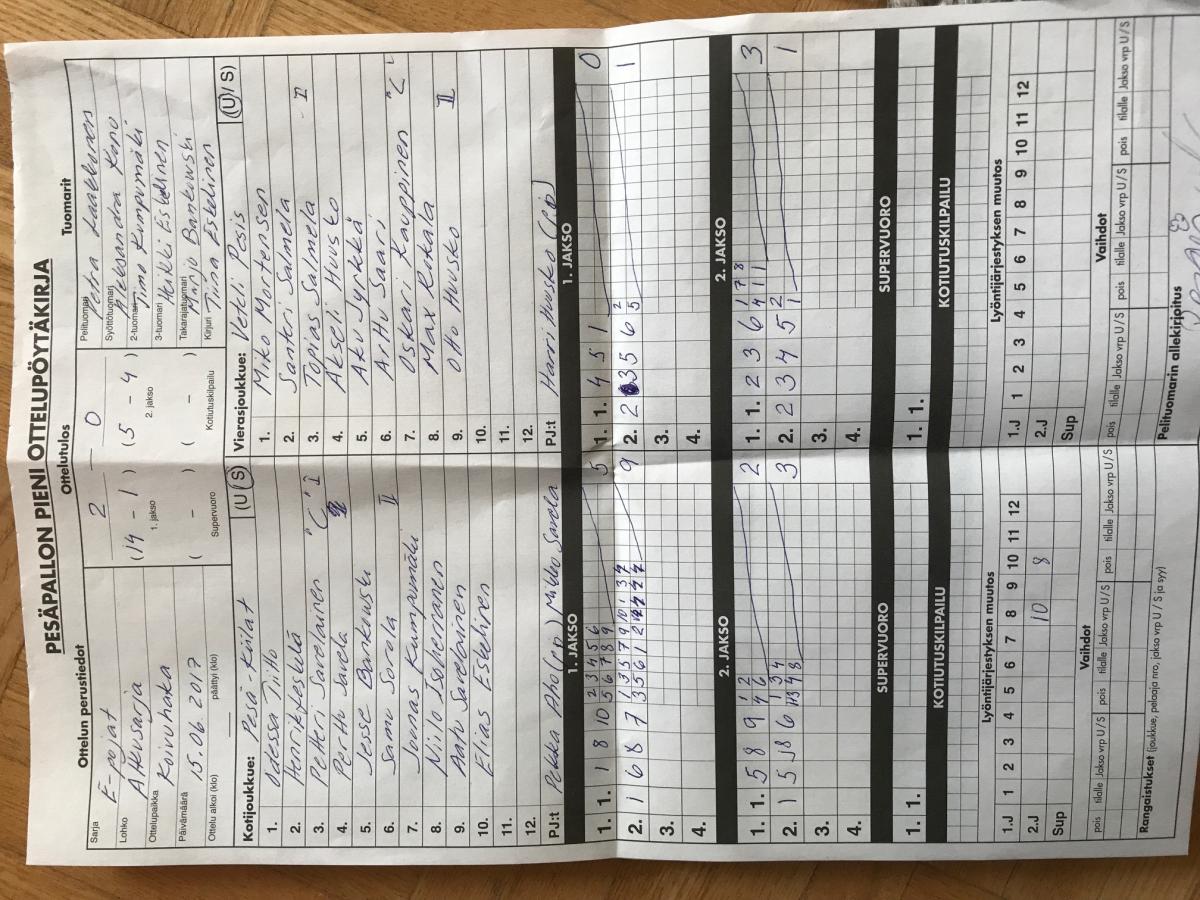 PESÄPALLON PIENI OTTELUPÖYTÄKIRJA
Ottelun perustiedot
Sarja E-pojat
Lohko Alkusarja
Ottelupaikka Koivuhaka
Päivämäärä 15.06.2017
Ottelu alkoi (klo) päättyi (klo)
Ottelutulos
2 - 0
(14 - 1) (5 - 4)
1. jakso 2. jakso
( - ) ( - )
Supervuoro Kotiutuskilpailu
Tuomarit
Pelituomari Petra Laakkonen
Syöttötuomari Aleksandra Kono
2-tuomari Timo Kumpumäki
3-tuomari Heikki Eskelinen
Takarajatuomari Tanja Bankowski
Kirjuri Tiina Eskelinen
Kotijoukkue: Pesä-Kiilat (U/S)
1. Odessa Tiiho
2. Henrik
3. Petteri Savolainen "C" I
4. Perttu Savola
5. Jesse Bankowski
6. Samu Salo II
7. Joonas Kumpumäki
8. Niilo
9. Aatu Savolainen
10. Elias Eskelinen
11.
12.
PJ:t Pekka Aho (pj) Mikko Savola
Vierasjoukkue: Veteli Pesis (U/S)
1. Miko Mortensen
2. Santeri Salmela
3. Topias Salmela I
4. Akseli Huusko
5. Aku Jyrkkä
6. Arttu Saari
7. Oskari Kauppinen "C"
8. Max Kokkala
9. Otto Huusko II
10.
11.
12.
PJ:t Harri Huusko (pj)
1. JAKSO
1. 1. 1 8 10 2 3 4 5 6 5
5 6 7 8 9
2. 1 6 8 7 1 3 5 7 9 10 1 3 9
3 5 6 1 2
3.
4.
1. JAKSO
1. 1. 4 5 1 0
2. 2 3 5 6 2 1
5
3.
4.
2. JAKSO
1. 1. 5 8 9 1 2 2
4 6
2. 1 5 8 6 1 3 4 3
3.
4.
2. JAKSO
1. 1. 2 3 6 1 7 8 3
4 1 1
2. 2 3 4 5 2 1
1
3.
4.
SUPERVUORO
1. 1.
SUPERVUORO
1. 1.
KOTIUTUSKILPAILU
KOTIUTUSKILPAILU
Lyöntijärjestyksen muutos
1.J 1 2 3 4 5 6 7 8 9 10 11 12
2.J 10 8
Sup
Lyöntijärjestyksen muutos
1.J 1 2 3 4 5 6 7 8 9 10 11 12
2.J
Sup
Vaihdot
pois tilalle Jakso vrp U/S pois tilalle Jakso vrp U/S pois tilalle Jakso vrp U/S
Vaihdot
pois tilalle Jakso vrp U/S pois tilalle Jakso vrp U/S pois tilalle Jakso vrp U/S
Rangaistukset (joukkue, pelaaja nro, jakso vrp U / S ja syy)
Pelituomarin allekirjoitus